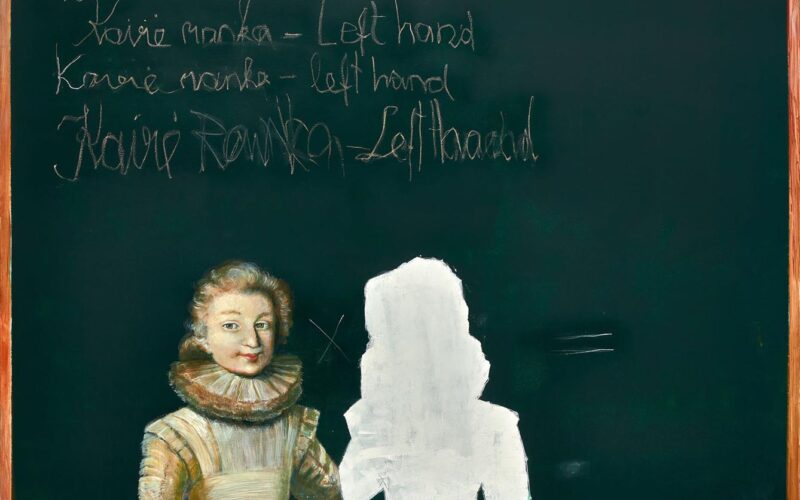 Kairė ranka – Left hand
Kairė ranka – left hand
Kairė Ranka – Left Haand
x =